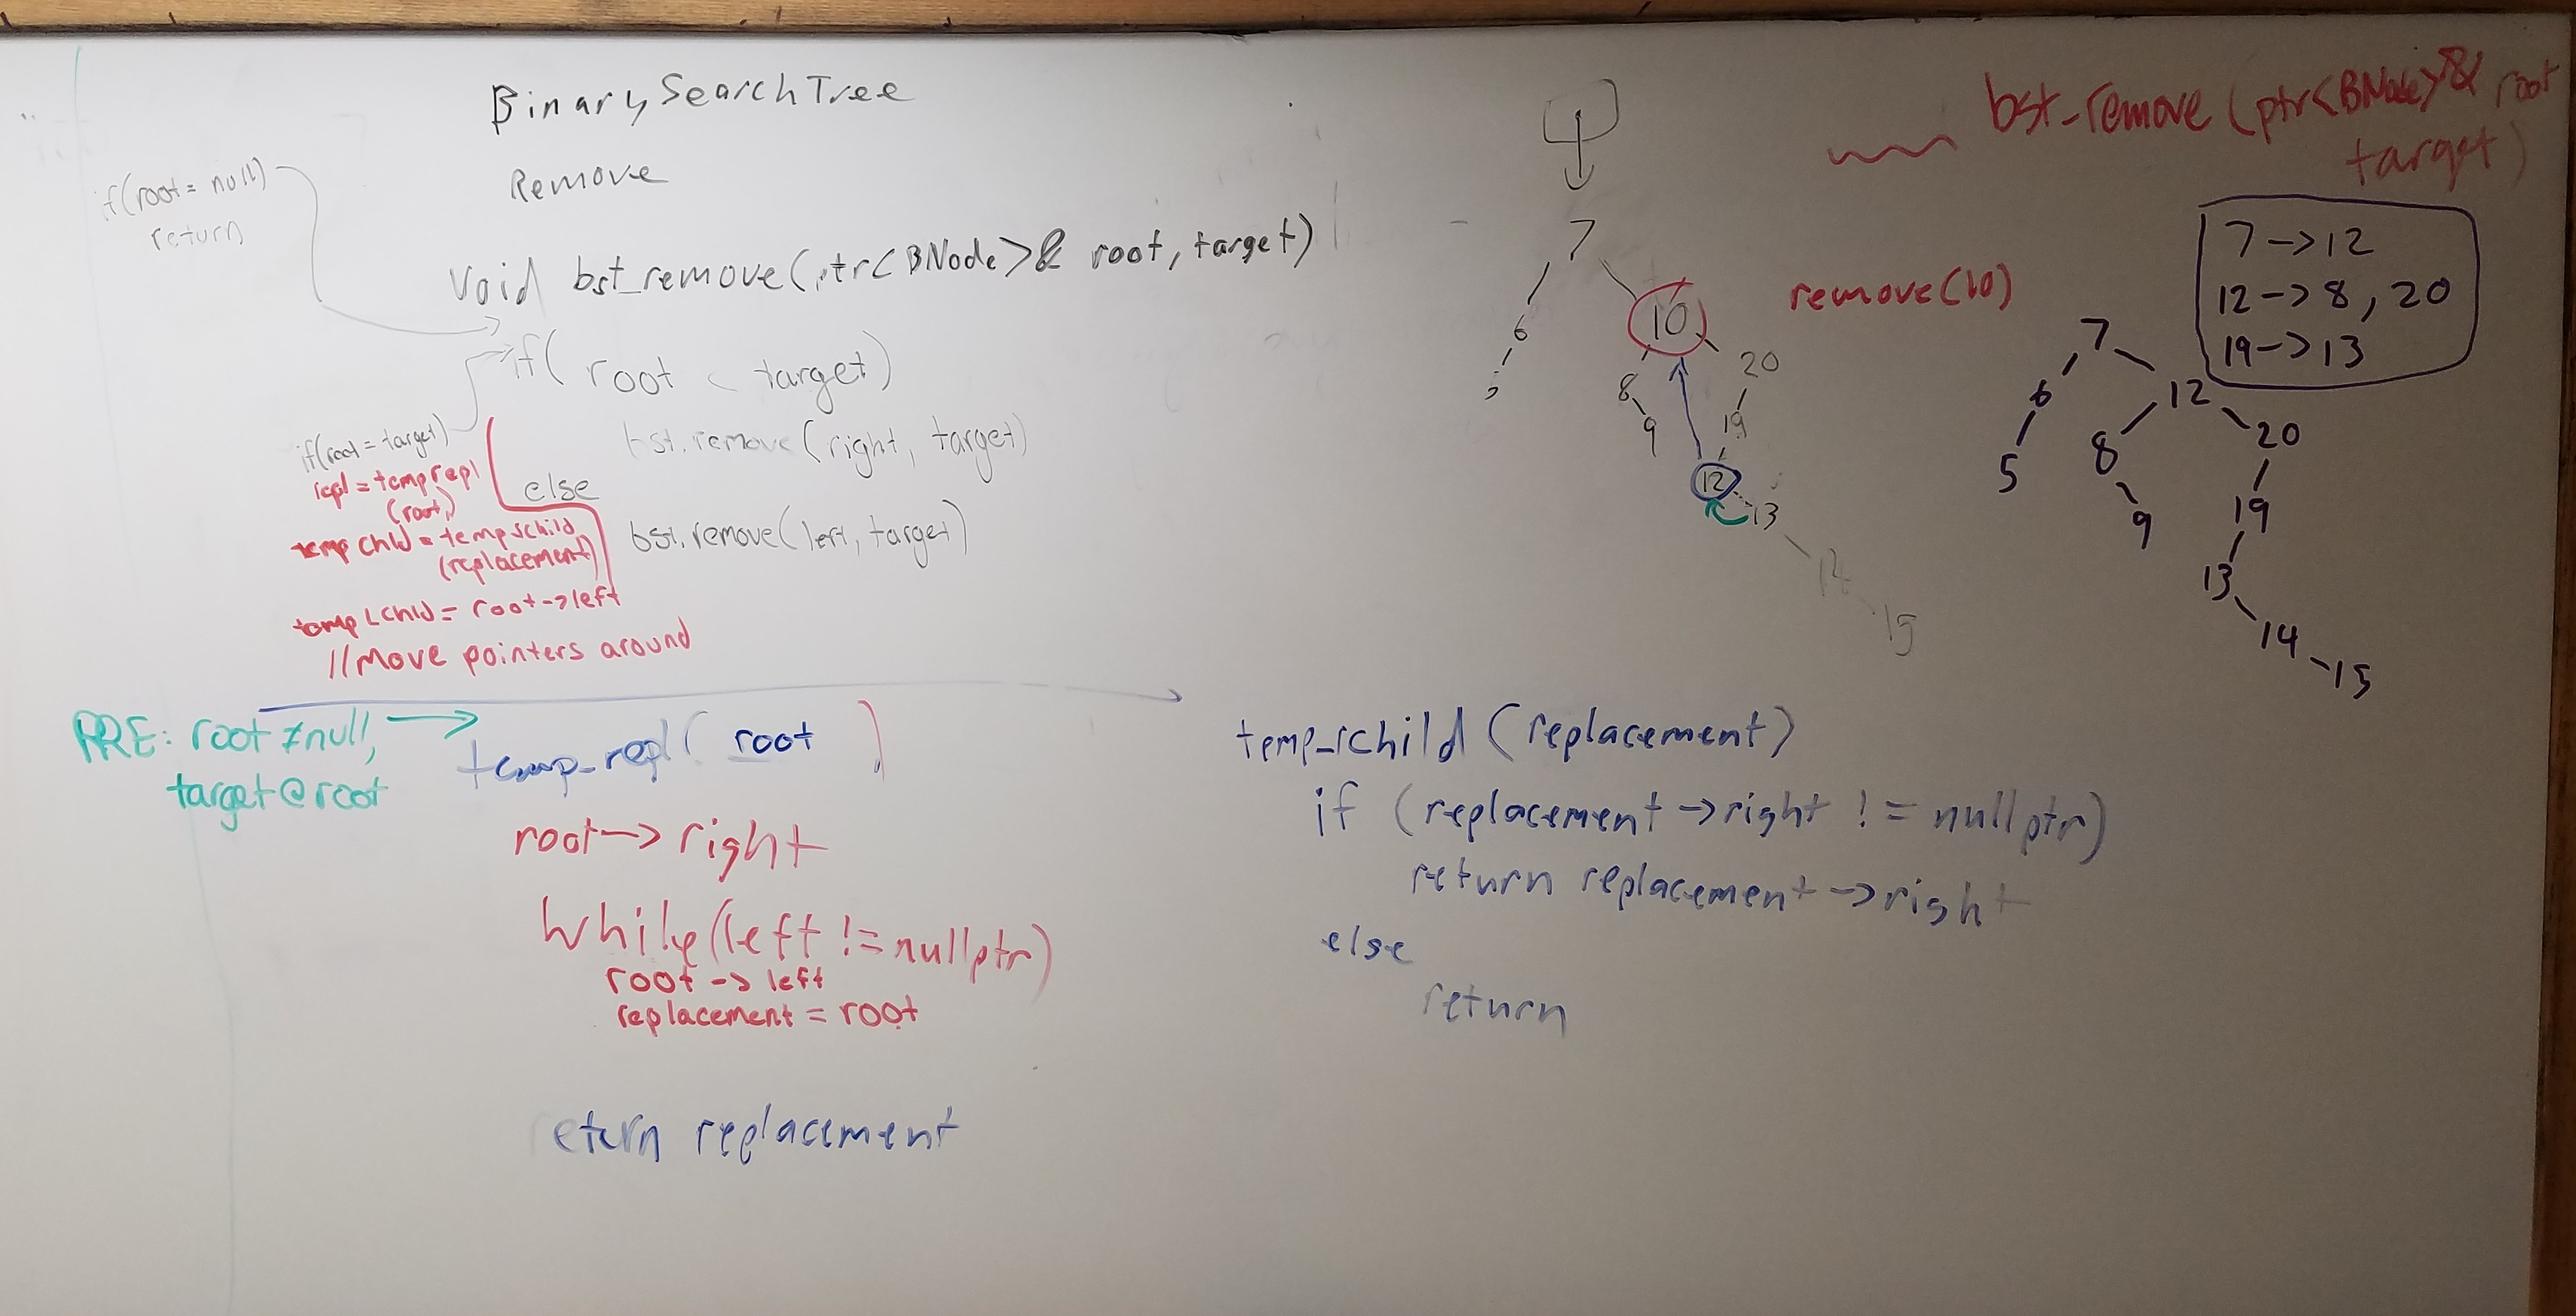 BinarySearchTree
Remove
if(root = null)
return
void bst_remove(ptr<BNode>& root, target)
if( root < target)
bst.remove(right, target)
if(root = target)
else
bst.remove(left, target)
repl = temp repl
(root)
temp chld = temp rchild
(replacement)
temp Lchld = root->left
//Move pointers around
PRE: root ≠ null,
target@root
temp_repl( root )
root -> right
while(left != nullptr)
root -> left
replacement = root
return replacement
temp_rchild (replacement)
if (replacement -> right != nullptr)
return replacement -> right
else
return
bst_remove (ptr<BNode>& root
target)
remove(10)
7
10
6
20
8
19
9
12
13
14
15
7 -> 12
12 -> 8, 20
19 -> 13
7
6
12
5
8
20
9
19
13
14
15